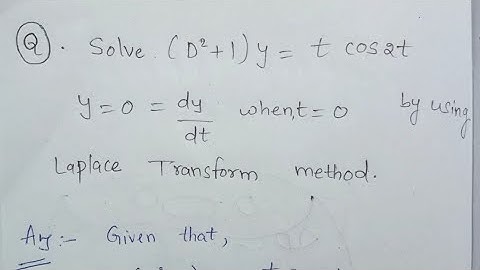 Q. Solve (D²+1)y = t cos2t
y=0 = dy/dt when, t=0 by using
Laplace Transform method.
Ans:- Given that,